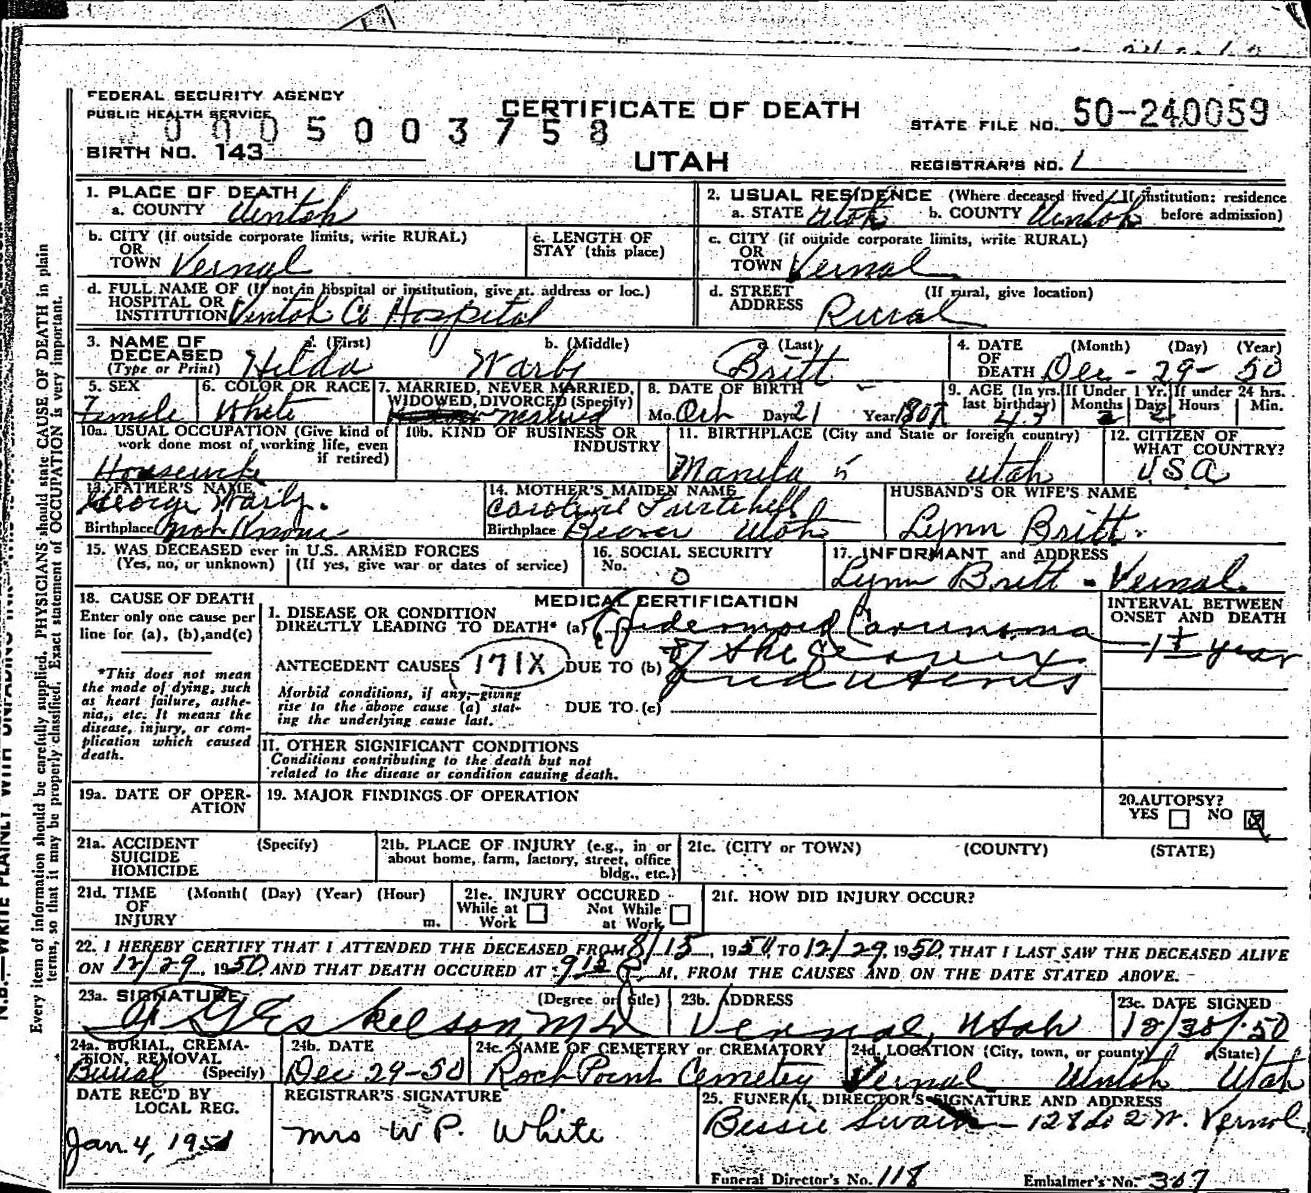 FEDERAL SECURITY AGENCY
PUBLIC HEALTH SERVICE
0005003758
BIRTH NO. 143
CERTIFICATE OF DEATH
UTAH
STATE FILE NO. 50-240059
REGISTRAR'S NO. 1
1. PLACE OF DEATH
a. COUNTY Uintah
2. USUAL RESIDENCE (Where deceased lived. If institution: residence before admission)
a. STATE Utah b. COUNTY Uintah
b. CITY (If outside corporate limits, write RURAL)
OR
TOWN Vernal
c. LENGTH OF
STAY (this place)
c. CITY (if outside corporate limits, write RURAL)
OR
TOWN Vernal
d. FULL NAME OF (If not in hospital or institution, give st. address or loc.)
HOSPITAL OR
INSTITUTION Uintah Co Hospital
d. STREET (If rural, give location)
ADDRESS Rural
3. NAME OF DECEASED
(Type or Print)
a. (First) b. (Middle) c. (Last)
Hilda Warby Britt
4. DATE OF DEATH (Month) (Day) (Year)
Dec - 29 - 50
5. SEX
Female
6. COLOR OR RACE
White
7. MARRIED, NEVER MARRIED,
WIDOWED, DIVORCED (Specify)
Married
8. DATE OF BIRTH
Mo. Oct Day 21 Year 1907
9. AGE (In yrs. last birthday) 43
If Under 1 Yr. Months 2 Days
If under 24 hrs. Hours Min.
10a. USUAL OCCUPATION (Give kind of
work done most of working life, even
if retired)
Housewife
10b. KIND OF BUSINESS OR
INDUSTRY
11. BIRTHPLACE (City and State or foreign country)
Manila Utah
12. CITIZEN OF
WHAT COUNTRY?
USA
13. FATHER'S NAME
George Warby.
Birthplace Not Known
14. MOTHER'S MAIDEN NAME
Caroline Twitchell
Birthplace Beaver Utah
HUSBAND'S OR WIFE'S NAME
Lynn Britt.
15. WAS DECEASED ever in U.S. ARMED FORCES
(Yes, no, or unknown) (If yes, give war or dates of service)
16. SOCIAL SECURITY
No. 0
17. INFORMANT and ADDRESS
Lynn Britt - Vernal.
18. CAUSE OF DEATH
Enter only one cause per
line for (a), (b), and (c)
*This does not mean
the mode of dying, such
as heart failure, asthe-
nia, etc. It means the
disease, injury, or com-
plication which caused
death.
MEDICAL CERTIFICATION
I. DISEASE OR CONDITION
DIRECTLY LEADING TO DEATH* (a) Epidermoid Carcinoma
ANTECEDENT CAUSES 171X DUE TO (b) of the cervix
and uterus
Morbid conditions, if any, giving
rise to the above cause (a) stat-
ing the underlying cause last.
DUE TO (c)
INTERVAL BETWEEN
ONSET AND DEATH
1± year
II. OTHER SIGNIFICANT CONDITIONS
Conditions contributing to the death but not
related to the disease or condition causing death.
19a. DATE OF OPER-
ATION
19. MAJOR FINDINGS OF OPERATION
20. AUTOPSY?
YES NO
21a. ACCIDENT (Specify)
SUICIDE
HOMICIDE
21b. PLACE OF INJURY (e.g., in or
about home, farm, factory, street, office
bldg., etc.)
21c. (CITY or TOWN) (COUNTY) (STATE)
21d. TIME (Month( (Day) (Year) (Hour)
OF
INJURY m.
21e. INJURY OCCURED
While at Work Not While at Work
21f. HOW DID INJURY OCCUR?
22. I HEREBY CERTIFY THAT I ATTENDED THE DECEASED FROM 8/15, 1950 TO 12/29, 1950, THAT I LAST SAW THE DECEASED ALIVE
ON 12/29, 1950 AND THAT DEATH OCCURED AT 9 15 P M, FROM THE CAUSES AND ON THE DATE STATED ABOVE.
23a. SIGNATURE (Degree or title)
Eskelson MD
23b. ADDRESS
Vernal, Utah
23c. DATE SIGNED
12/30/50
24a. BURIAL, CREMA-
TION, REMOVAL
(Specify)
Burial
24b. DATE
Dec 29-50
24c. NAME OF CEMETERY or CREMATORY
Rock Point Cemetery
24d. LOCATION (City, town, or county) (State)
Vernal Uintah Utah
DATE REC'D BY
LOCAL REG.
Jan. 4, 1951
REGISTRAR'S SIGNATURE
Mrs W P. White
25. FUNERAL DIRECTOR'S SIGNATURE AND ADDRESS
Bessie Swain - 128 So 2 W. Vernal
Funeral Director's No. 118 Embalmer's No. 307
N.B.—WRITE PLAINLY WITH UNFADING INK
Every item of information should be carefully supplied. PHYSICIANS should state CAUSE OF DEATH in plain
terms, so that it may be properly classified. Exact statement of OCCUPATION is very important.